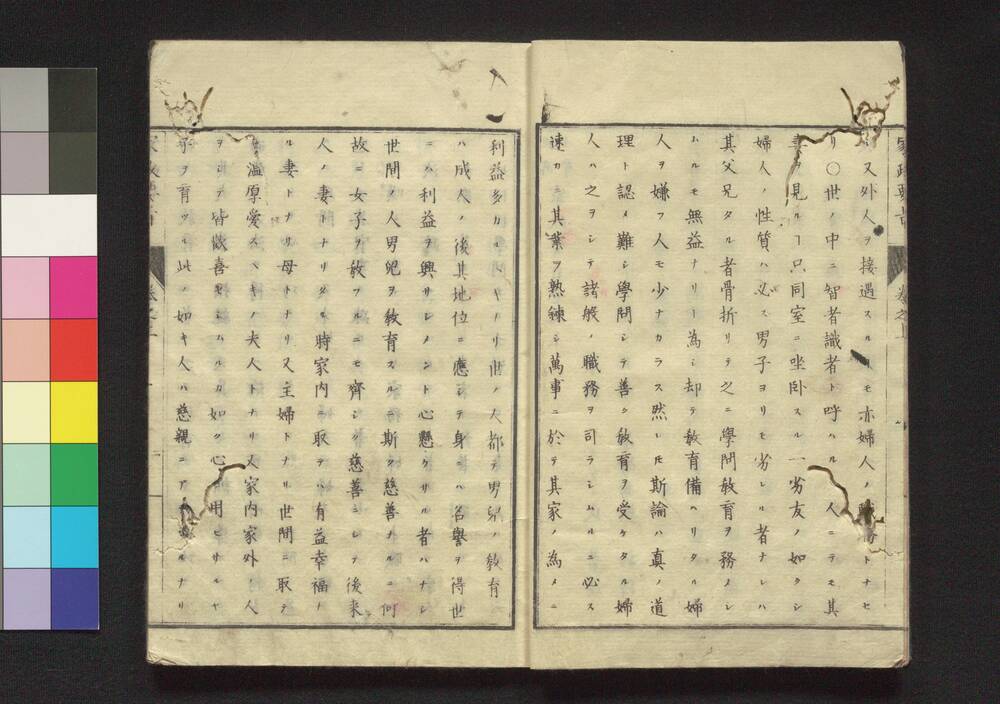 又外人ヲ接遇スルヿモ亦婦人ノ トナセ
リ〇世ノ中ニ智者識者ト呼ハル 人ニテモ其
妻ヲ見ルヿ只同室ニ坐卧スル一劣友ノ如クシ
婦人ノ性質ハ必ス男子ヨリモ劣レル者ナレハ
其父兄タル者骨折リテ之ニ學問敎育ヲ務メシ
ムルモ無益ナリト為シ却テ敎育備ハリタル婦
人ヲ嫌フ人モ少ナカラス然レ𪜈斯論ハ真ノ道
理ト認メ難シ學問シテ善ク敎育ヲ受ケタル婦
人ハ之ヲシテ諸般ノ職務ヲ司ラシムルニ必ス
速カニ其業ヲ熟練シ萬事ニ於テ其家ノ為メニ
利益多カルヘキナリ世ノ人都テ男兒ノ敎育
ニハ成人ノ後其地位ニ應シテ身ニハ名譽ヲ得世
ニハ利益ヲ興サシメント心懸ケサル者ハナシ
世間ノ人男兒ヲ敎育スルニ斯ク慈善ナルニ何
故ニ女子ヲ敎フルニモ齊シク慈善ニシテ後來
人ノ妻トナリタル時家内ニ取テハ有益幸福ナ
ル妻トナリ母トナリ又主婦トナリ世間ニ取テ
ハ温厚愛スヘキノ夫人トナリ又家内家外ノ人
ヲシテ皆歡喜セシムルカ如ク心ヲ用ヒサルヤ
子ヲ育ツル此ノ如キ人ハ慈親ニア ルナリ
家政要旨 卷之上